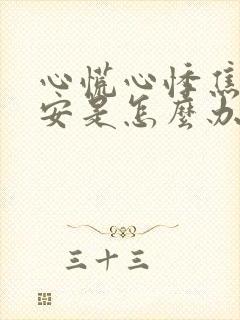 心慌心悸焦
安是怎麼办
三十三